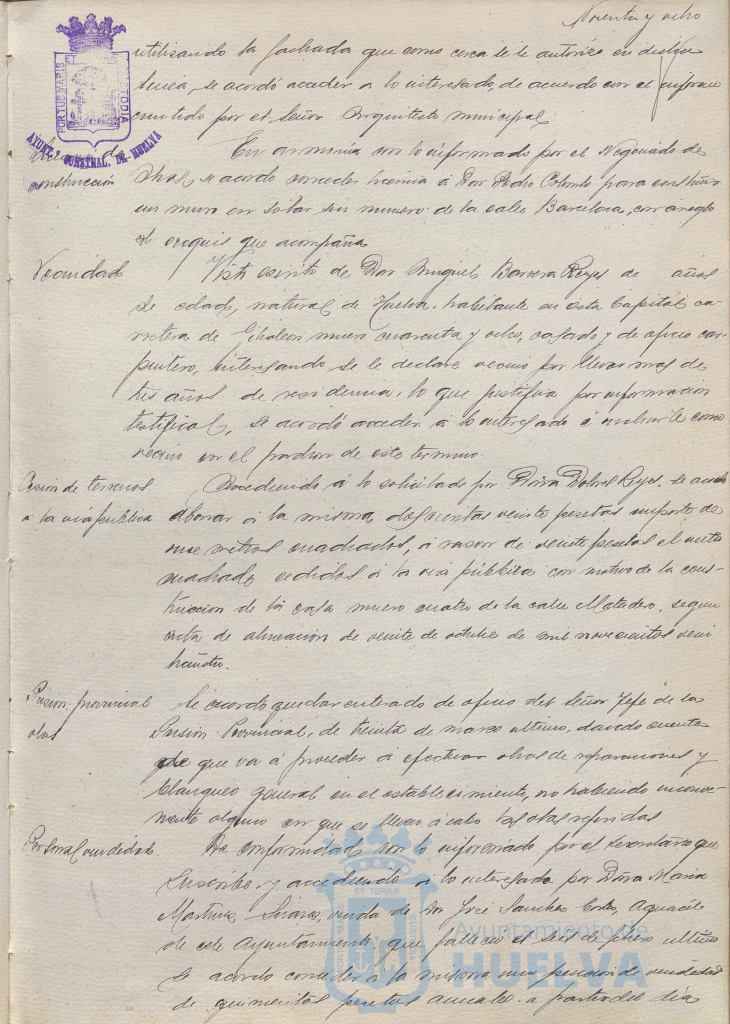 Noventa y ocho
utilizando la fachada que como cerca se le autorice en
se acordó acceder a lo interesado, de acuerdo con el informe
emitido por el Señor Arquitecto municipal.
PORTUS MARIS ET TERRAE CUSTODIA
AYUNT.º CONSTNAL. DE HUELVA
Licencia de
construcción
En armonía con lo informado por el Negociado de
Obras, se acordó conceder licencia á Don Pedro para construir
un muro en solar sin numero de la calle Barcelona, con arreglo
al croquis que acompaña
Vecindad
Visto escrito de Don Miguel Barrera Reyes de años
de edad, natural de Huelva, habitante en esta Capital ca-
rretera de Gibraleon numero cuarenta y ocho, casado y de oficio car-
pintero, interesando se le declare vecino por llevar mas de
tres años de residencia, lo que justifica por informacion
testifical, se acordó acceder á lo interesado é incluirle como
vecino en el padron de este termino.
Cesion de terrenos
a la via publica
Accediendo á lo solicitado por Doña Dolores Reyes, se acordó
abonar á la misma doscientas veinte pesetas importe de
once metros cuadrados, á razon de veinte pesetas el metro
cuadrado cedidos á la via pública con motivo de la cons-
truccion de la casa numero cuatro de la calle Matadero, segun
acta de alineacion de veinte de octubre de mil novecientos vein
Prision provincial
obras
Se acordó quedar enterado de oficio del Señor Jefe de la
Prision Provincial, de treinta de marzo ultimo, dando cuenta
de que va á proceder á efectuar obras de reparaciones y
blanqueo general en el establecimiento, no habiendo inconve-
niente alguno en que se lleven á cabo las obras referidas
Personal viudedad
De conformidad con lo informado por el Secretario que
suscribe y accediendo á lo interesado por Doña Maria
Martinez Suarez, viuda de Don José Sanchez Cortes, Aguacil
de este Ayuntamiento, que fallecio el seis de ultimo
se acordo conceder á la misma una pension de viudedad
de quinientas pesetas anuales a partir del dia
Ayuntamiento de
HUELVA